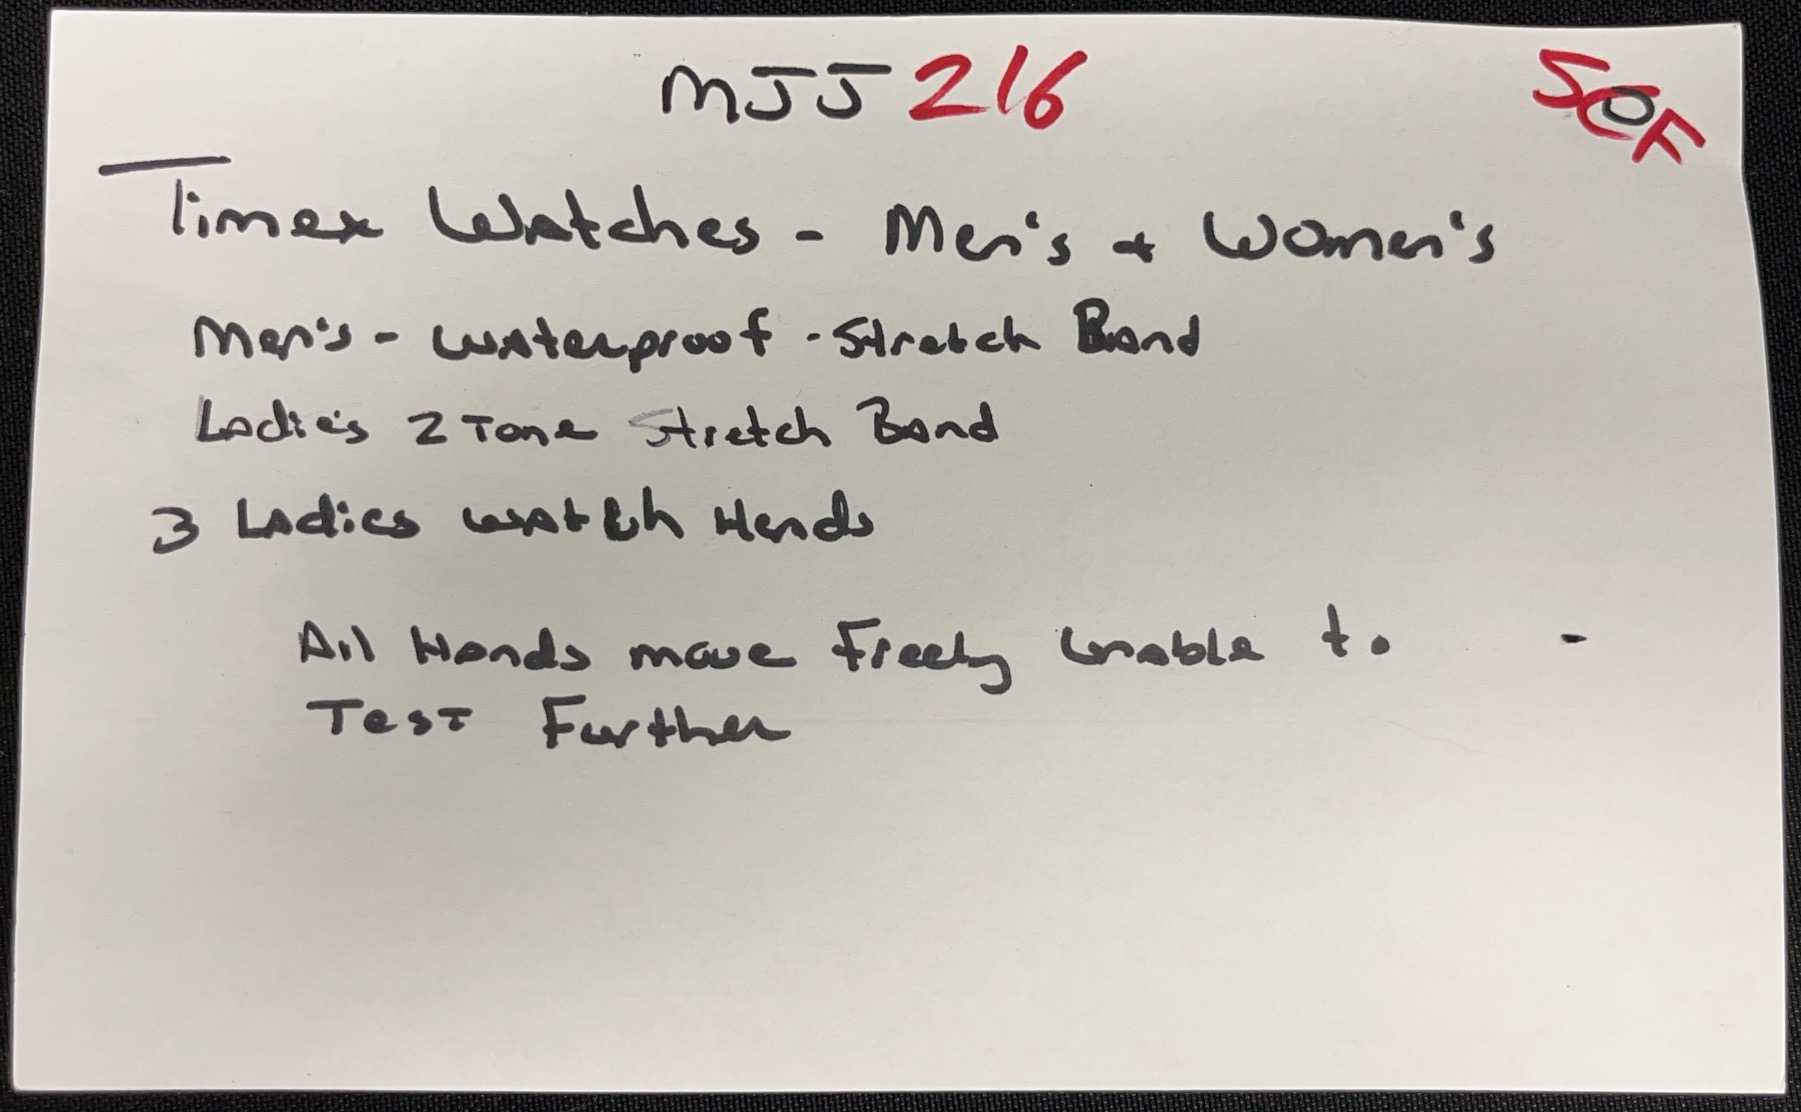 MJJ 216
Timex Watches - Men's + Women's
Men's - Waterproof - Stretch Band
Ladies 2 Tone Stretch Band
3 Ladies Watch Heads
All Hands move Freely Unable to -
Test Further